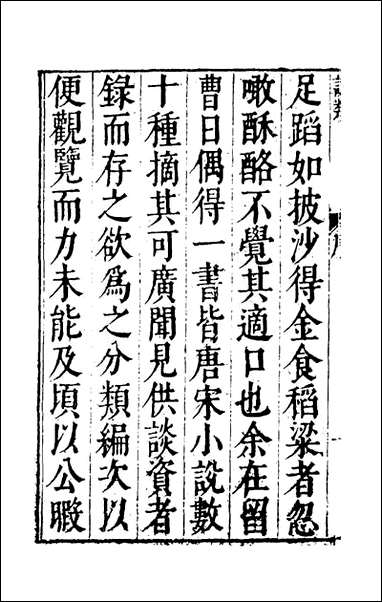 足蹈如披沙得金食稻粱者忽
噉酥酪不覺其適口也余在留
曹日偶得一書皆唐宋小説數
十種摘其可廣聞見供談資者
錄而存之欲爲之分類編次以
便觀覽而力未能及頃以公暇